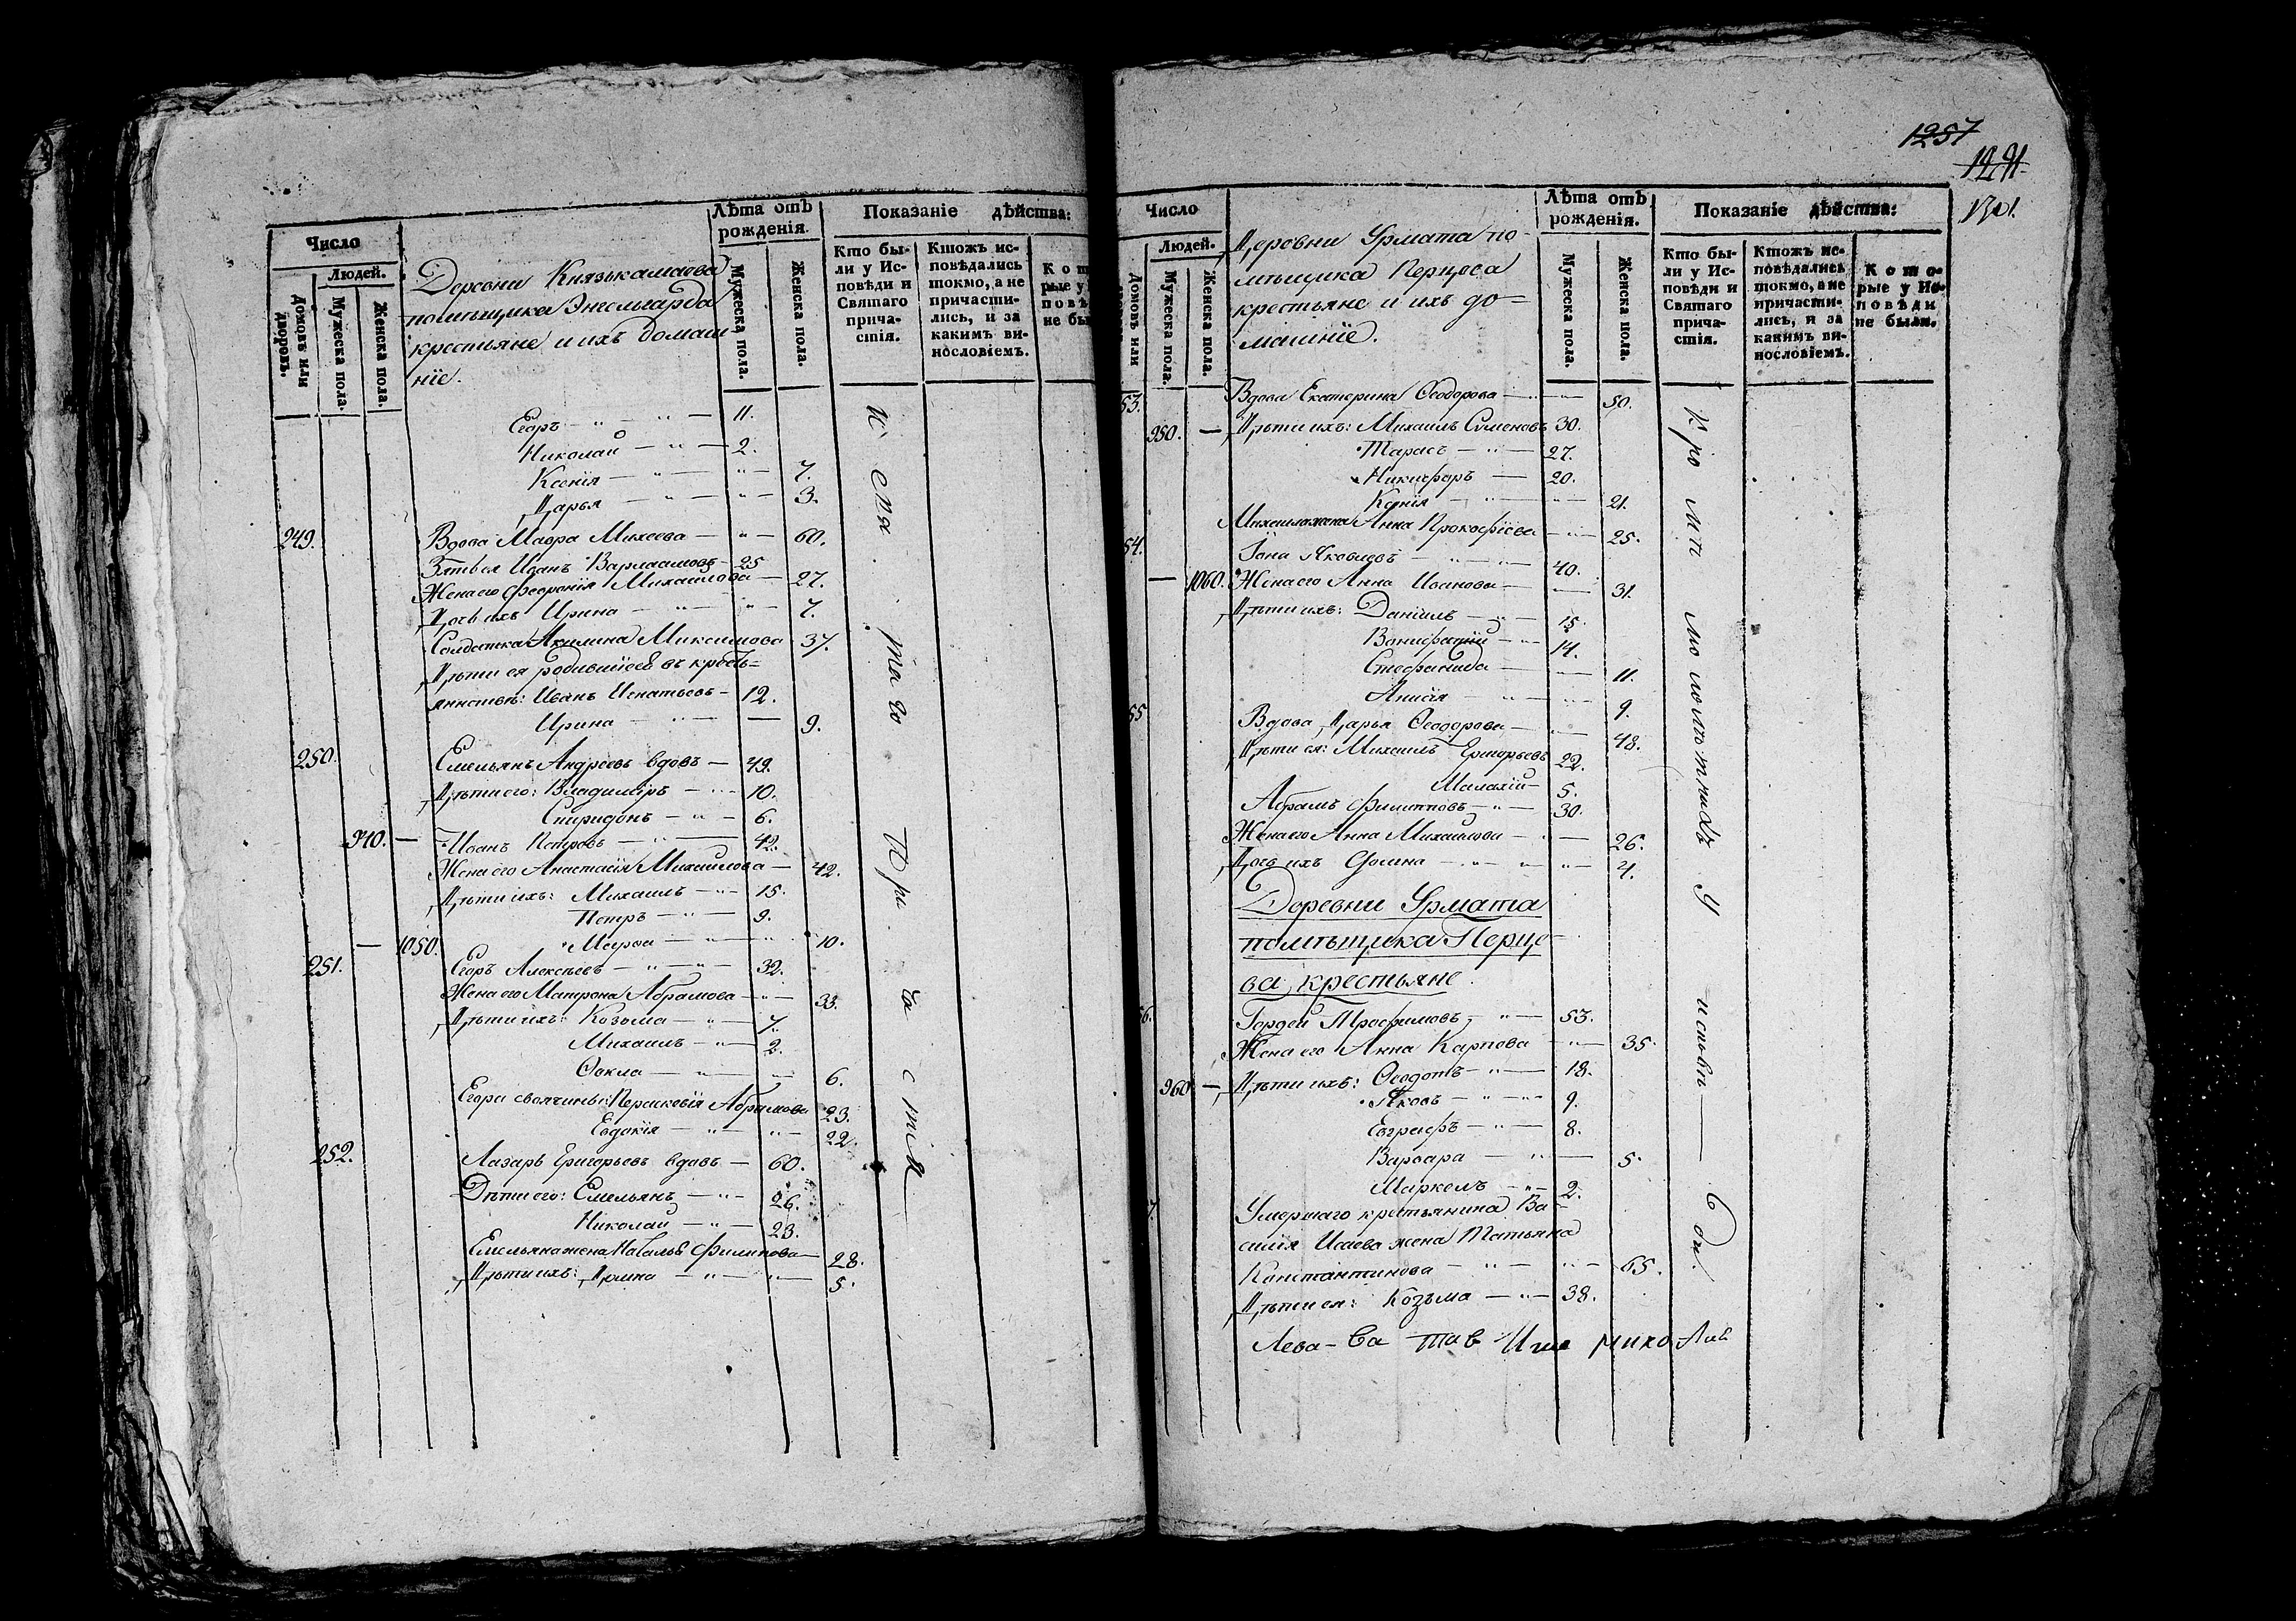 Число
Людей.
Домовъ или дворовъ.
Мужеска пола.
Женска пола.
Деревни Князькамаева
помѣщика Энгельгарда
крестьяне и ихъ домаш
нїе.
Лѣта отъ рожденїя.
Мужеска пола.
Женска пола.
Показанїе дѣйства:
Кто бы-
ли у Ис-
повѣди и
Святаго
прича-
стїя.
Ктожъ ис-
повѣдались
токмо, а не
причасти-
лись, и за
какимъ ви-
нословїемъ.
Егоръ — „ — 11.
Николай — „ — 2.
Ксенїя — „ — „ — 7.
Дарья — „ — „ — 3.
249. Вдова Мавра Михеева — „ — 60.
Зять ея Иванъ Варламовъ — 25
Жена его Феөронїя Михаилова — 27.
Дочь ихъ Ирина — „ — „ — 7.
Солдатка Акилина Максимова 37.
Дѣти ея родившїеся въ кресть=
янствѣ: Иванъ Игнатьевъ — 12.
Ирина — „ — — 9.
250. Емельянъ Андреевъ вдовъ — 49.
Дѣти его: Владимїръ — „ — 10.
Спиридонъ — „ — 6.
940. — Иванъ Петровъ — „ — 42.
Жена его Анастасїя Михаилова — 42.
Дѣти ихъ: Михаилъ — „ — 15.
Петръ — „ — 9.
— 1050. Марөа — „ — „ 10.
251. Егоръ Алексѣевъ — „ — „ — 32.
Жена его Матрона Абрамова — „ — 33.
Дѣти ихъ: Козьма — „ — 7.
Михаилъ — „ — 2.
Өекла — „ — „ — 6.
Егора своячины: Парасковїя Абрамова 23.
Евдокїя — „ — „ — 22.
252. Лазарь Григорьевъ вдовъ — 60.
Дѣти его: Емельянъ — „ — 26.
Николай — „ — 23.
Емельяна жена Наталья Филипова — 28.
Дѣти ихъ: Ирина — „ — „ — 5.
Святаго Причастїя
1257
1291
1301.
Число
Людей.
Домовъ или
Мужеска пола.
Женска пола.
Деревни Урмата по-
мѣщика Перцова
крестьяне и ихъ до=
машнїе.
Лѣта отъ рожденїя.
Мужеска пола.
Женска пола.
Показанїе дѣйства:
Кто бы-
ли у Ис-
повѣди и
Святаго
прича-
стїя.
Ктожъ ис-
повѣдались
токмо, а не
причасти-
лись, и за
какимъ ви-
нословїемъ.
Кото-
рые у Ис-
повѣди
не были.
53. Вдова Екатерина Өеодорова — „ — 50.
950. — Дѣти ихъ: Михаилъ Симеоновъ 30.
Тарасъ — „ — 27.
Никифоръ — 20.
Ксенїя — „ — „ — 21.
Михаила жена Анна Прокофїева — „ — 25.
54. Іона Яковлевъ — „ — „ — 40.
— 1060. Жена его Анна Иванова — — 31.
Дѣти ихъ: Данїилъ — „ — 15.
Вонифатїй — „ — 14.
Стефанида — — 11.
Анисїя — „ — „ — 9.
55 Вдова Дарья Өеодорова — „ — 48.
Дѣти ея: Михаилъ Григорьевъ 22.
Малахїй — 5.
Абрамъ Филипповъ — „ — 30.
Жена его Анна Михаилова — „ — 26.
Дочь ихъ — „ — „ — 4.
Деревни Урмата
помѣщика Перцо-
ва, крестьяне
56. Гордей Трофимовъ — „ — 53.
Жена его Анна Карпова — „ — 35.
960 — Дѣти ихъ: Өеодотъ — „ — 18.
Яковъ — „ — 9.
Евграфъ — „ — 8.
Варвара — „ — 5.
Маркелъ — „ — 2.
7. Умершаго крестьянина Ва-
силїя Исаева жена Татьяна
Константинова — „ — „ — 65.
Дѣти ея: Козьма — „ — 38.